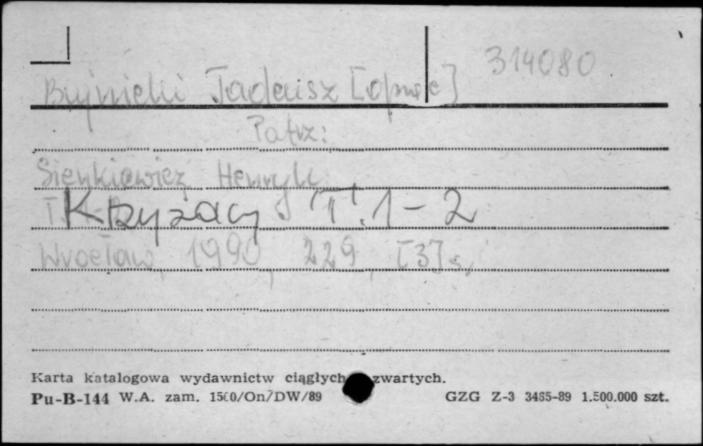 314080
Bujnicki Tadeusz [oprac]
Patrz:
Sienkiewicz Henryk
Krzyżacy T. 1-2
Wrocław, 1990, 229, [3] s,
Karta katalogowa wydawnictw ciągłych zwartych.
Pu-B-144 W.A. zam. 1500/On/DW/89 GZG Z-3 3485-89 1.500.000 szt.